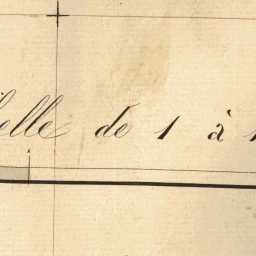 elle de 1 à 1